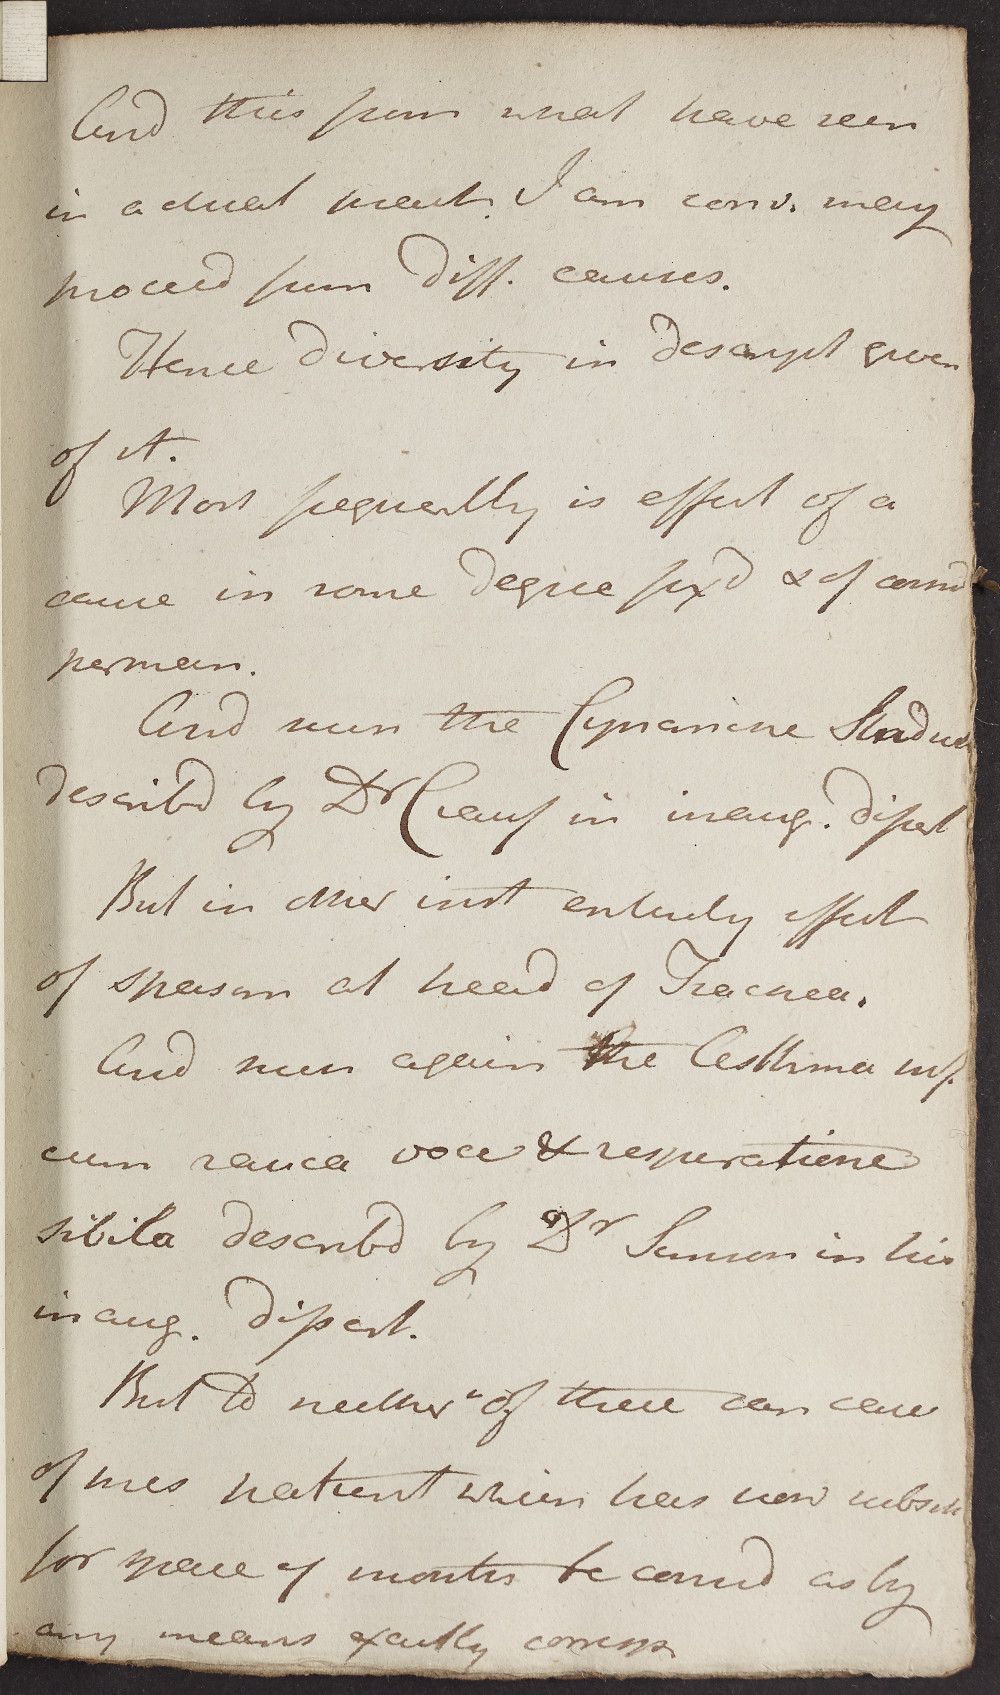 And this from what have seen
in actual pract. I am conv. may
proceed from diff. causes.
Hence diversity in descript given
of it.
Most frequently is effect of a
cause in some degree fix'd & of consid
perman.
And such the Cynanche Stridula
describd by Dr Crauf in inaug. dissert
But in other inst entirely effect
of spasm at head of Trachea.
And such again the Asthma inf.
cum rauca voce & respiratione
sibila describd by Dr Simson in his
inaug. dissert.
But to neither of these can case
of this patient which has now subsist
for space of months be consid as by
any means exactly corresp